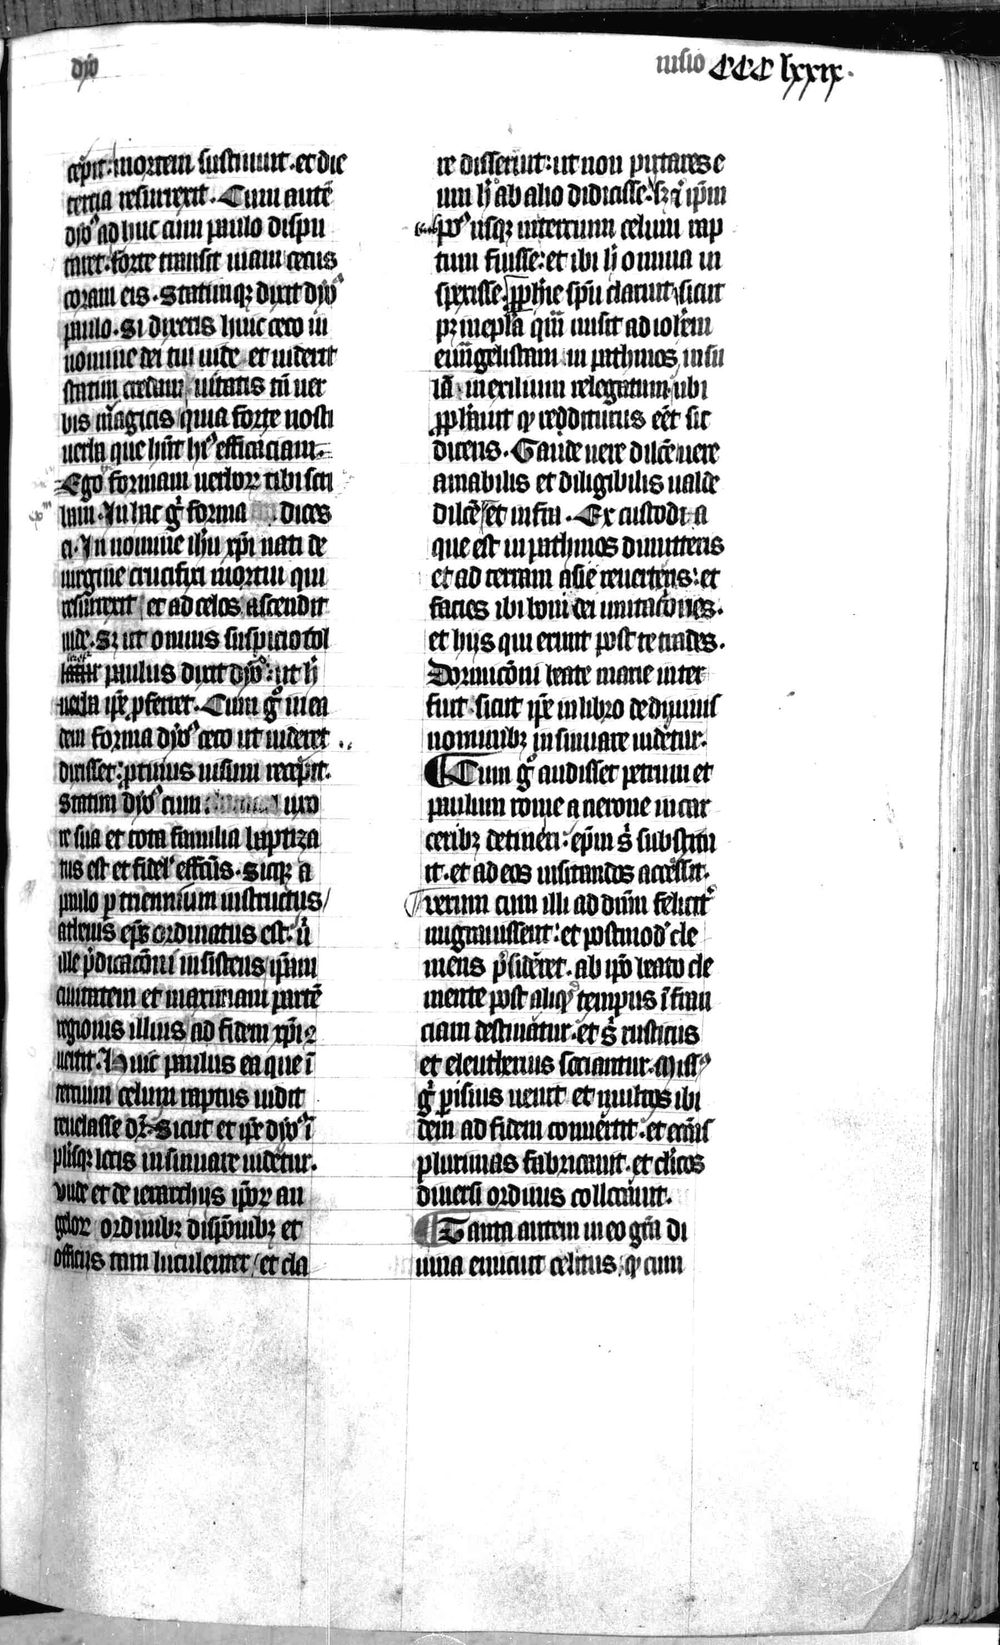 dyo
nisio CCC lxxix.
cepit: mortem sustinuit. et die
tercia resurrexit. Cum autē
dyo⁹ ad huc cum paulo dispu
taret. forte transit uiam cecus
coram eis. Statimqz dixit dyo⁹
paulo. Si dixeris huic ceco in
nomine dei tui uide et uiderit
statim credam utaris tn̄ uer
bis magicis quia forte nosti
uerba que hn̄t hc̄ efficaciam.
Ego formam uerborz tibi scri
bam. In hac g̊ forma dices
ei. In nomine ihū xp̄i nati de
uirgine crucifixi mortui qui
resurrexit et ad celos ascendit
uide. Sz ut omnis suspicio tol
paulus dixit dyo⁹: ut h̄
uerba ip̄e pferret. Cum g̊ in ea
dem forma dyo⁹ ceco ut uideret
dixisset: protinus uisum recepit.
Statim dyo⁹ cum uxo
re sua et tota familia baptiza
tus est et fidel' effc̄us. Sicqz a
paulo p triennium instructus
athenis ep̄s ordinatus est: ū
ille p̄dicac̄oni insistens ip̄am
ciuitatem et maximam partē
regionis illius ad fidem xp̄i 9
uertit. Huic paulus ea que ī
tercium celum raptus uidit
reuelasse dr̄. Sicut et ip̄e dyo⁹ ī
plīsqz locis insinuare uidetur.
Vnde et de ierarchiis ip̄orz an
gelorz ordinibz disp̄onibz et
officiis tam luculenter et cla
re disseruit: ut non putares e
um h̄ ab alio didicisse. sz q̄ ip̄m
usqz in tercium celum rap
tum fuisse: et ibi h̄ omnia in
spexisse. pph̄ie sp̄u claruit sicut
pz in ep̄la quā misit ad ioh̄em
euāgelistam in pathmos insu
lā in exilium relegatum ubi
pph̄auit q redditurus eēt sic
dicens. Gaude uere dilcē uere
amabilis et diligibilis ualde
dilcē et infra. Ex custodia
que est in pathmos dimitteris
et ad terram asie reuerteris: et
facies ibi boni dei imitac̄ones.
et hijs qui erunt post te trades.
Dormic̄oni beate marie inter
fuit sicut ip̄e in libro de diuinis
nominibz insinuare uidetur.
Cum g̊ audisset petrum et
paulum rome a nerone in car
ceribz detineri: ep̄m s̄ substitu
it. et ad eos uisitandos accessit.
Verum cum illi ad dn̄m felicit̄
migrauissent: et postmod̄ cle
mens p̄sideret. ab ip̄o beato cle
mente post aliq̄ tempus ī fran
ciam destinatur. et s̄ rusticus
et eleutherius sociantur. Miss⁹
g̊ parisius uenit et multos ibi
dem ad fidem conuertit. et ecc̄ias
plurimas fabricauit. et clicos
diuersi ordinis collocauit.
Tanta autem in eo gr̄a di
uina emicuit celitus, q cum